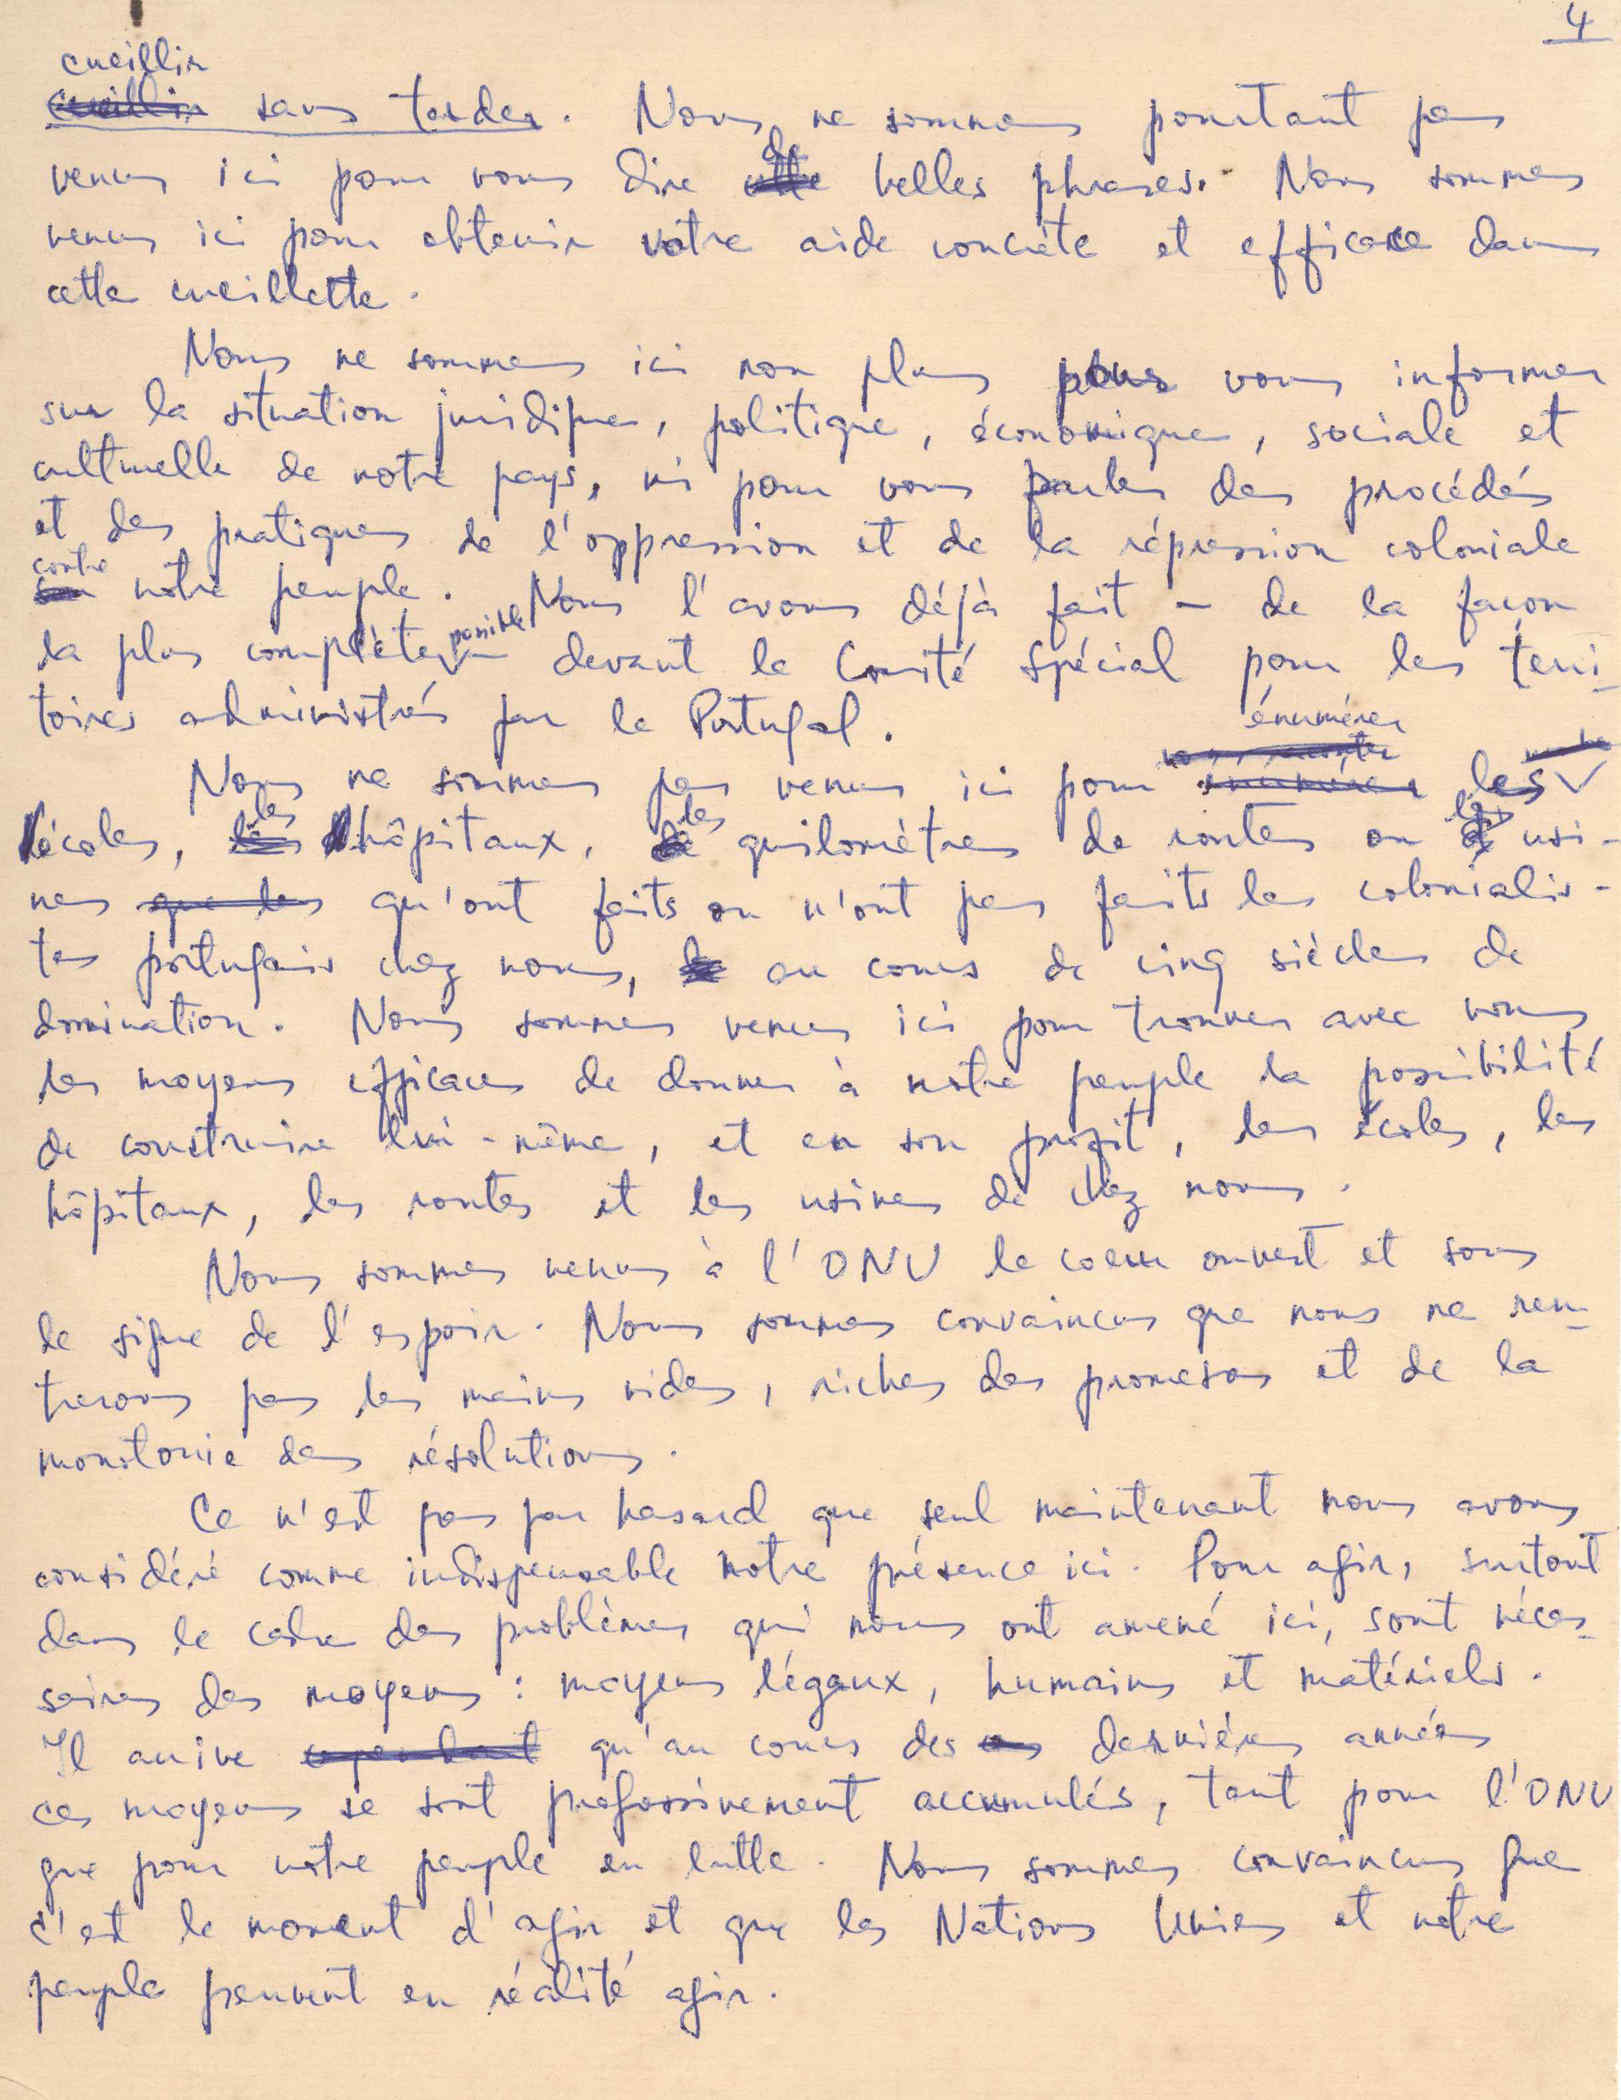 4
cueillir
cueillir sans tarder. Nous ne sommes pourtant pas
venus ici pour vous dire de belles phrases. Nous sommes
venus ici pour obtenir votre aide concrète et efficace dans
cette cueillette.
Nous ne sommes ici non plus pour vous informer
sur la situation juridique, politique, économique, sociale et
culturelle de notre pays, ni pour vous parler des procédés
et des pratiques de l'oppression et de la répression coloniale
contre notre peuple. Nous l'avons déjà fait – de la façon
la plus complète possible – devant le Comité Spécial pour les terri-
toires administrés par le Portugal.
énumérer
Nous ne sommes pas venus ici pour les
écoles, les hôpitaux, les quilomètres de routes ou les usi-
nes que les qu'ont faits ou n'ont pas faits les colonialis-
tes portugais chez nous, au cours de cinq siècles de
domination. Nous sommes venus ici pour trouver avec vous
les moyens efficaces de donner à notre peuple la possibilité
de construire lui-même, et en son profit, les écoles, les
hôpitaux, les routes et les usines de chez nous.
Nous sommes venus à l'ONU le coeur ouvert et sous
le signe de l'espoir. Nous sommes convaincus que nous ne ren-
trerons pas les mains vides, riches des promesas et de la
monotonie des résolutions.
Ce n'est pas par hasard que seul maintenant nous avons
considéré comme indispensable notre présence ici. Pour agir, surtout
dans le cadre des problèmes qui nous ont amené ici, sont néces-
saires des moyens : moyens légaux, humains et matériels.
Il arrive cependant qu'au cours des dernières années
ces moyens se sont progressivement accumulés, tant pour l'ONU
que pour notre peuple en lutte. Nous sommes convaincus que
c'est le moment d'agir et que les Nations Unies et notre
peuple peuvent en réalité agir.